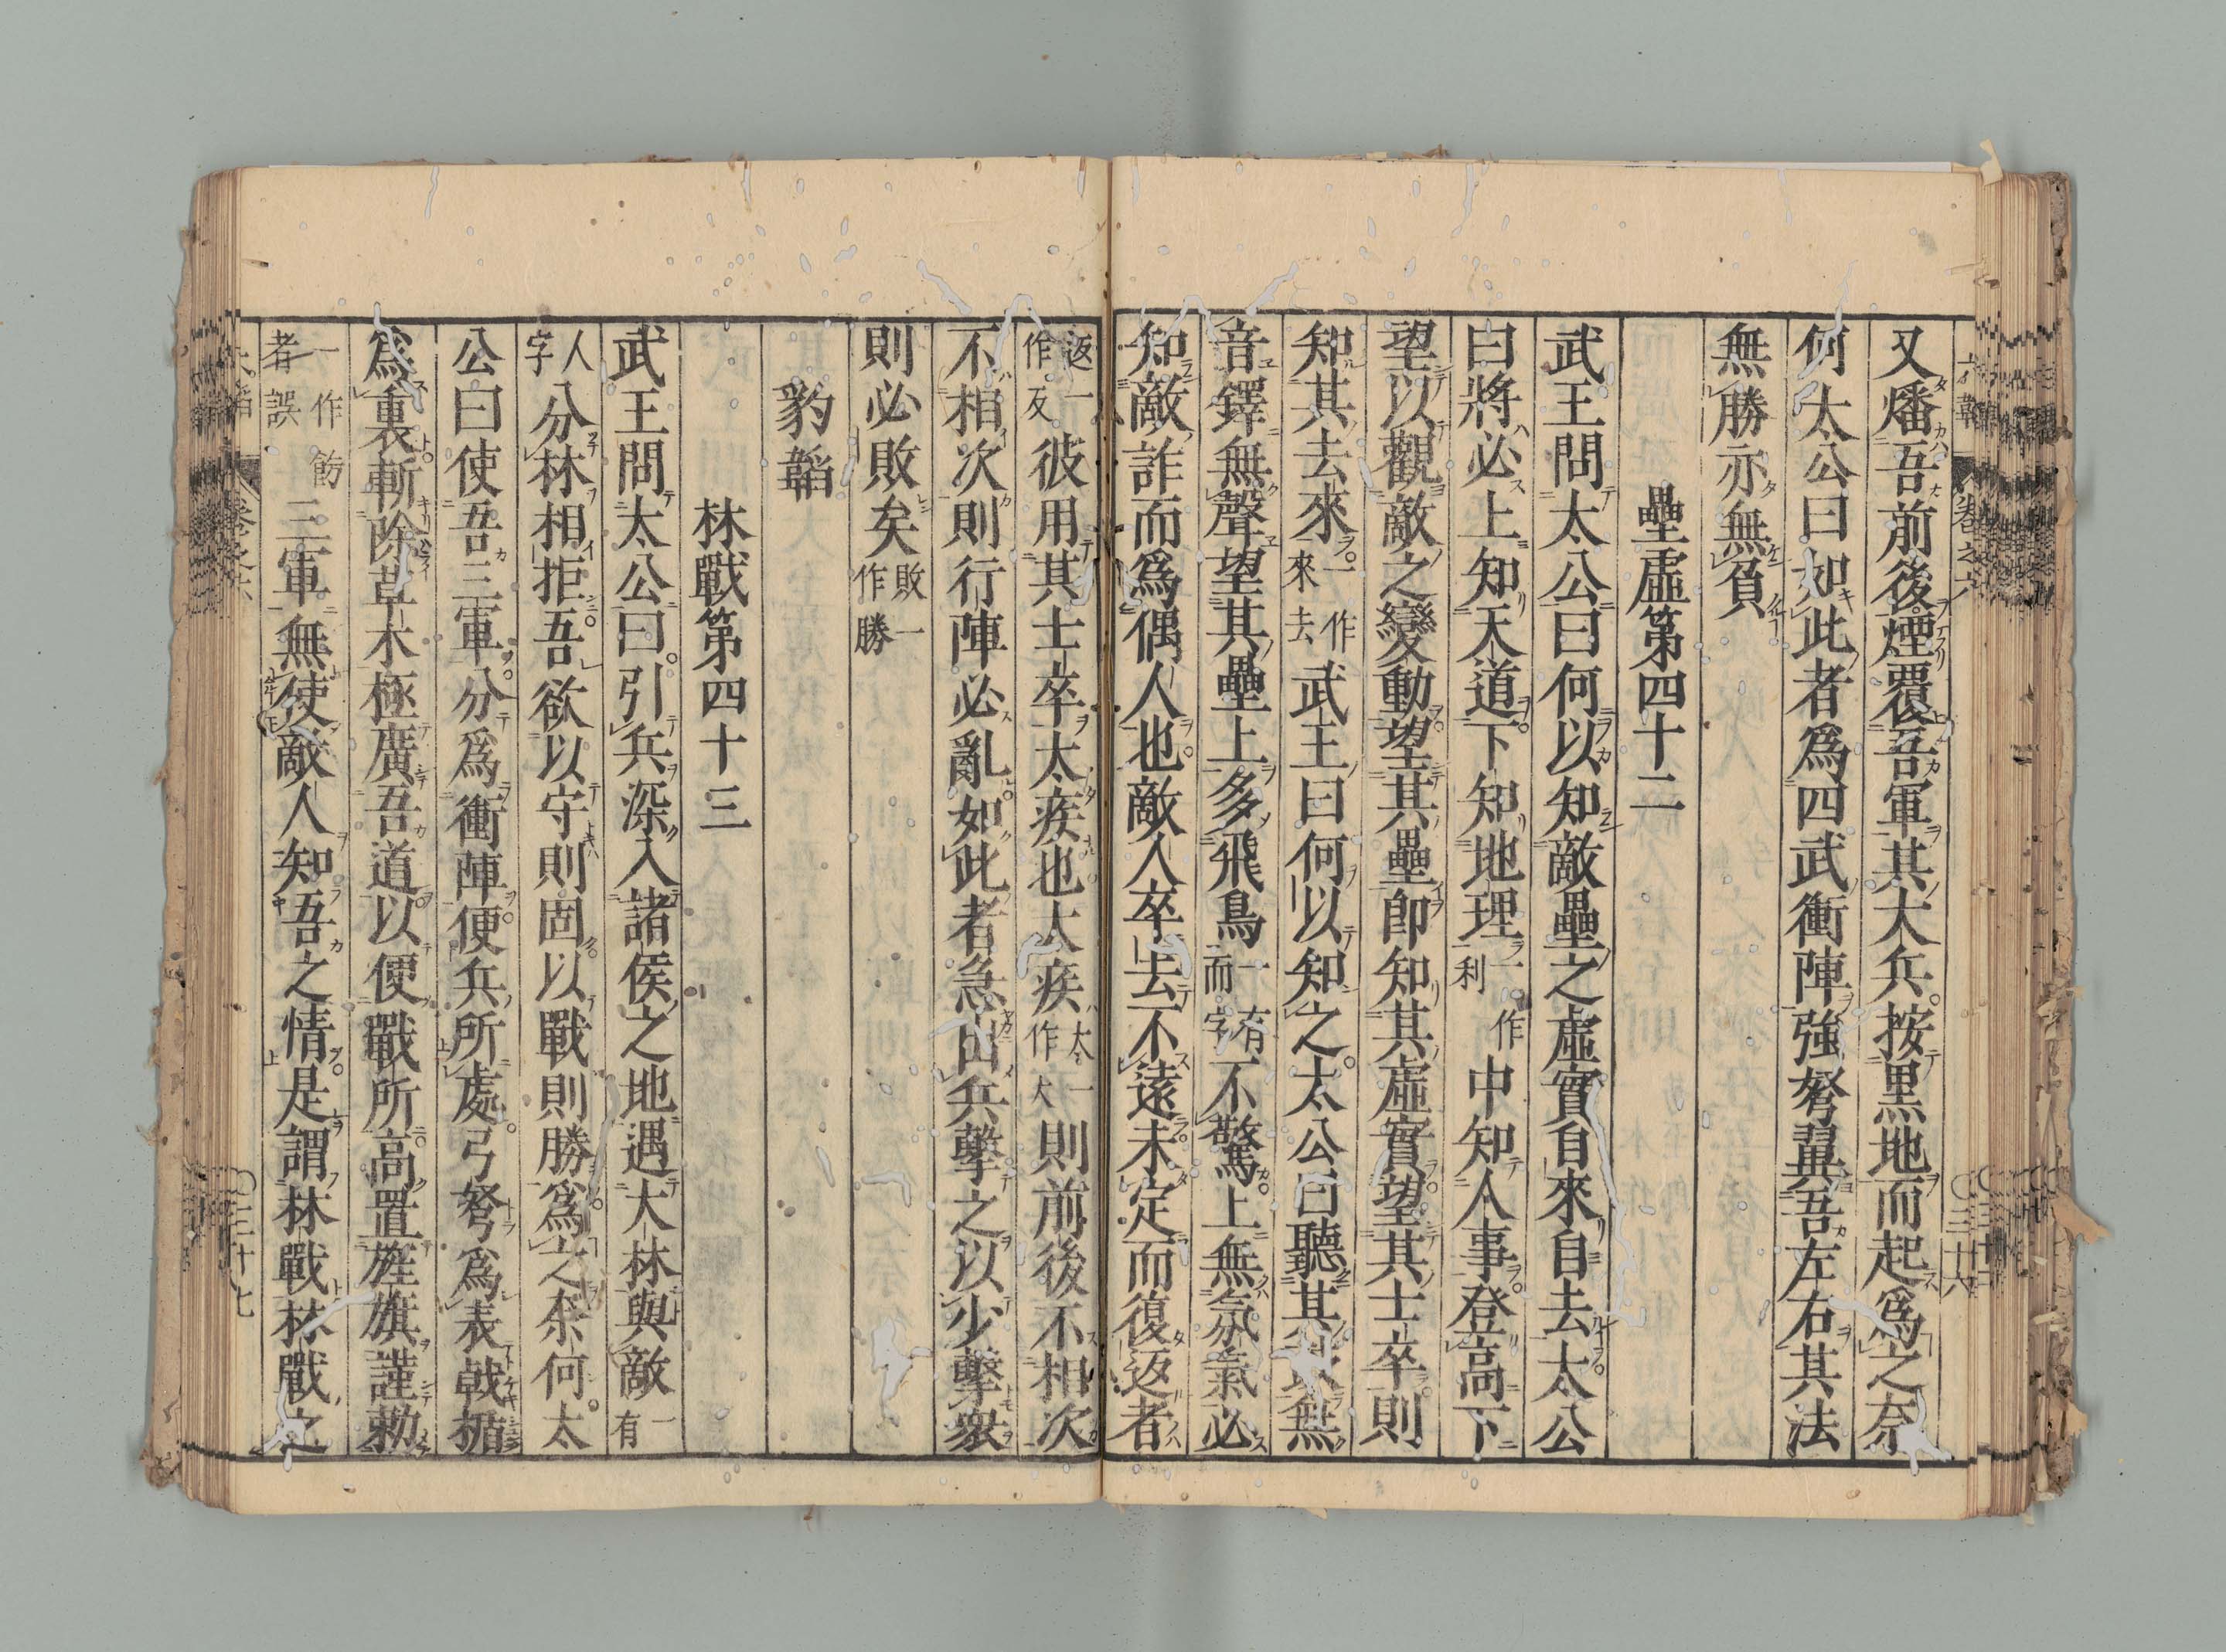 又燔吾前後煙覆吾軍其大兵按黒地而起爲之奈
何太公曰如此者爲四武衝陣強弩翼吾左右其法
無勝亦無負
壘虛第四十二
武王問太公曰何以知敵壘之虛實自來自去太公
曰將必上知天道下知地理一作利中知人事登高下
望以觀敵之變動望其壘即知其虛實望其士卒則
知其去來一作來去武王曰何以知之太公曰聽其鼓無
音鐸無聲望其壘上多飛鳥一有而字不驚上無氛氣必
知敵詐而爲偶人也敵人卒去不遠未定而復返者
返一作反彼用其士卒太疾也太疾太一作大則前後不相次
不相次則行陣必亂如此者急出兵擊之以少擊衆
則必敗矣敗一作勝
豹韜
林戰第四十三
武王問太公曰引兵深入諸侯之地遇大林與敵一有
人字分林相拒吾欲以守則固以戰則勝爲之奈何太
公曰使吾三軍分爲衝陣便兵所處弓弩爲表戟楯
爲裏斬除草木極廣吾道以便戰所高置旌旗謹勅
一作飭者誤三軍無使敵人知吾之情是謂林戰林戰之